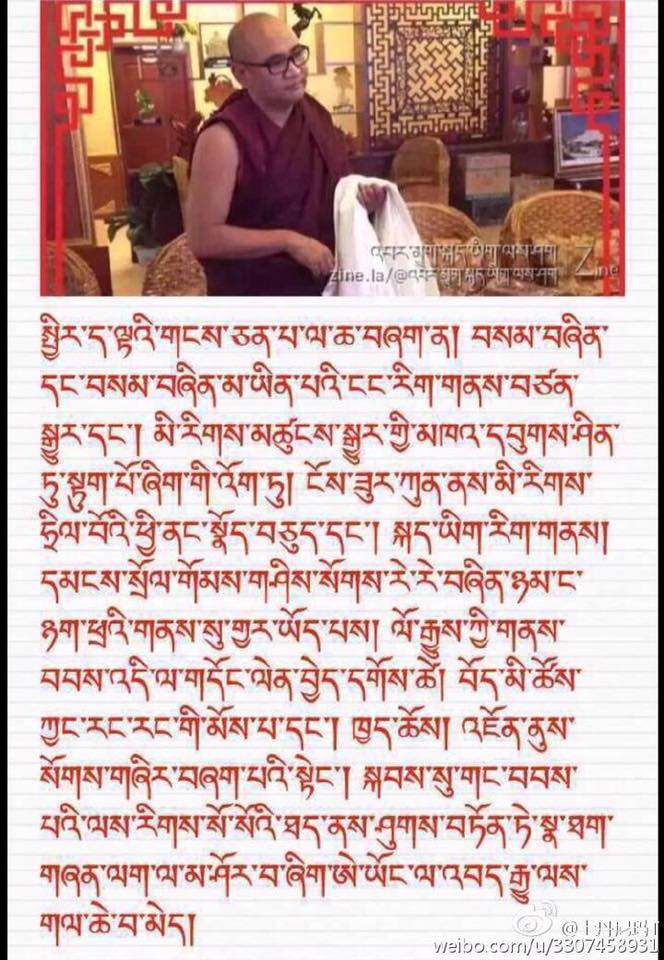 འབར་མུག་སྐད་ཡིག་ལས་ཤག
zine.la/@འབར་མུག་སྐད་ཡིག་ལས་ཤག
Zine
སྤྱིར་ད་ལྟའི་གངས་ཅན་པ་ལ་ཆ་བཞག་ན། བསམ་བཞིན་
དང་བསམ་བཞིན་མ་ཡིན་པའི་ངང་རིག་གནས་བཙན་
སྒྱུར་དང་། མི་རིགས་མཚུངས་སྒྱུར་གྱི་མཁའ་དབུགས་ཤིན་
ཏུ་སྟུག་པོ་ཞིག་གི་འོག་ཏུ། ངོས་ཟུར་ཀུན་ནས་མི་རིགས་
ཧྲིལ་བོའི་ཕྱི་ནང་སྣོད་བཅུད་དང་། སྐད་ཡིག་རིག་གནས།
དམངས་སྲོལ་གོམས་གཤིས་སོགས་རེ་རེ་བཞིན་ཉམ་ང་
ཉག་ཕྲའི་གནས་སུ་གྱར་ཡོད་པས། ལོ་རྒྱུས་ཀྱི་གནས་
བབས་འདི་ལ་གདོང་ལེན་བྱེད་དགོས་ཚེ། བོད་མི་ཚོས་
ཀྱང་རང་རང་གི་མོས་པ་དང་། ཁྱད་ཆོས། འཇོན་ནུས་
སོགས་གཞིར་བཞག་པའི་སྟེང་། སྐབས་སུ་གང་བབས་
པའི་ལས་རིགས་སོ་སོའི་ཐད་ནས་ཤུགས་བཏོན་ཏེ་སྣ་ཐག་
གཞན་ལག་ལ་མ་ཤོར་བ་ཞིག་ཨེ་ཡོང་ལ་འབད་རྒྱུ་ལས་
གལ་ཆེ་བ་མེད།
weibo.com/u/3307458931